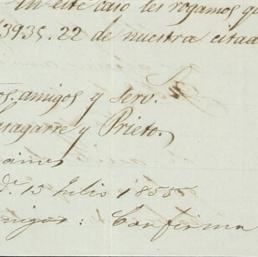 En este caso les rogamos qu
3935.22 de nuestra citad
os. amigos y serv.
ragarre y Prieto,
13 Julio 1855
migos: Confirma